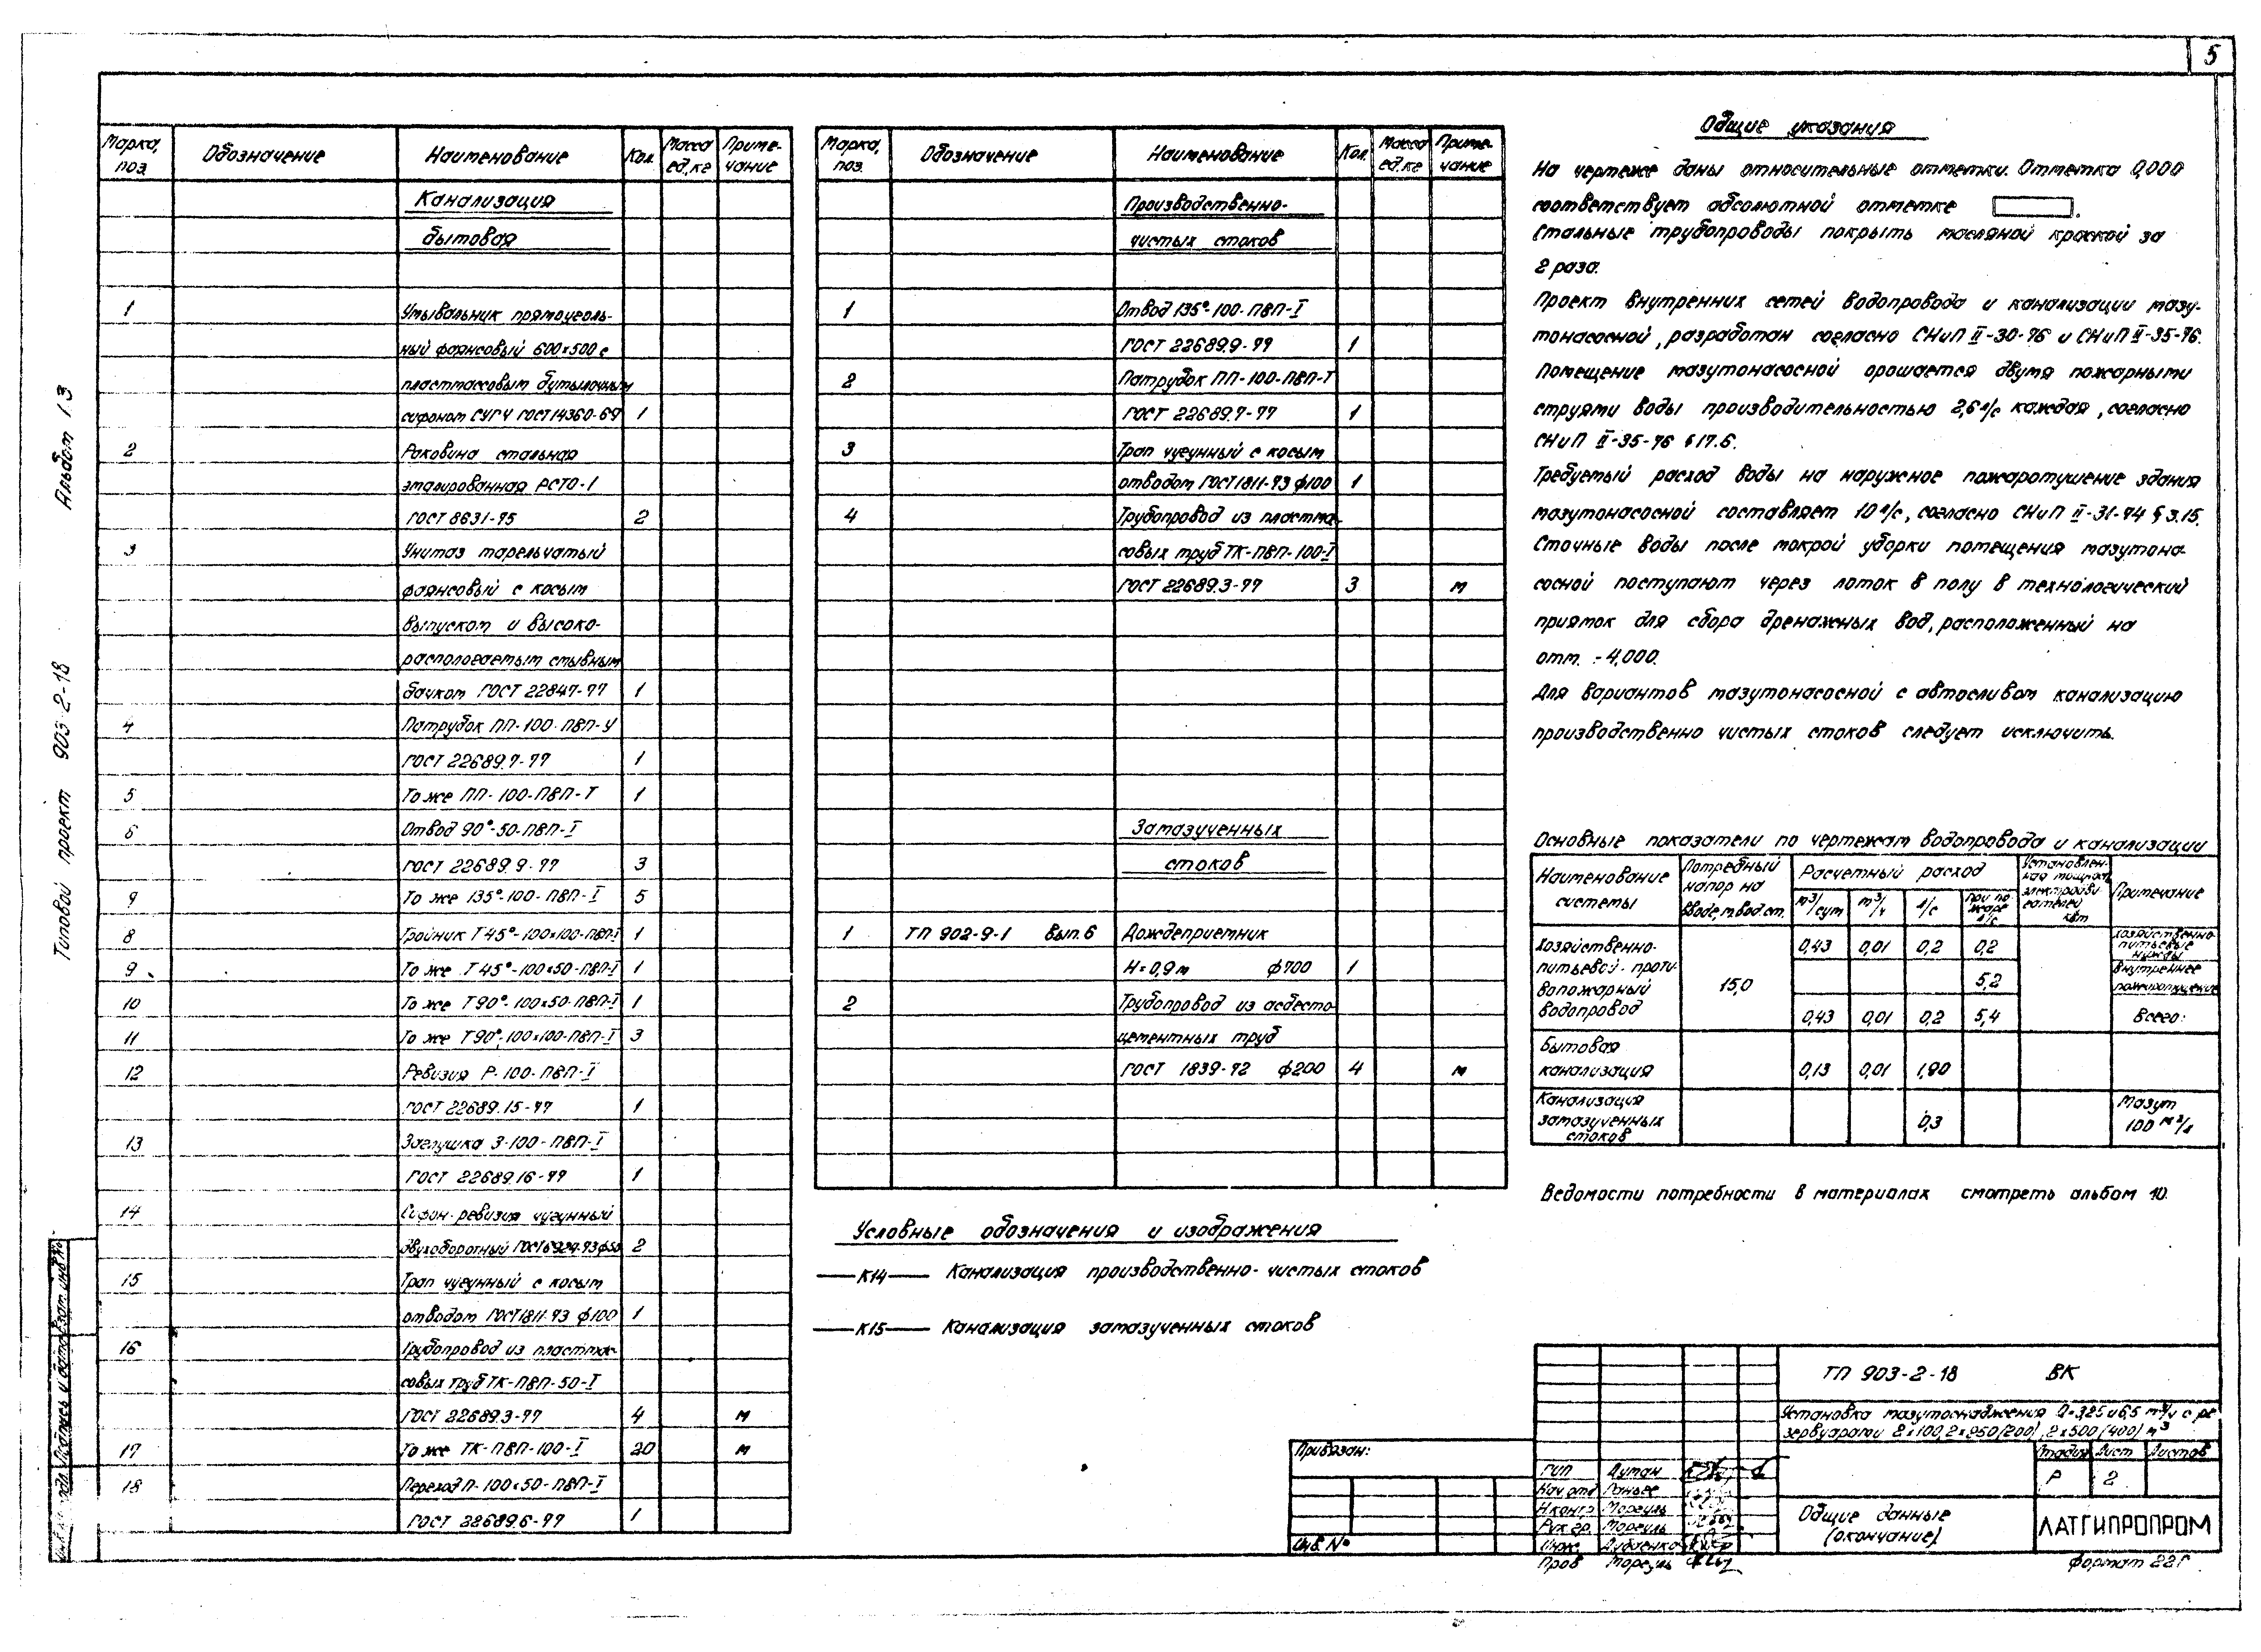 5
Альбом 13
Типовой проект 903-2-18
Марка, поз. Обозначение Наименование Кол. Масса ед.кг Приме-чание
Канализация
бытовая
1 Умывальник прямоуголь-
ный фаянсовый 600×500 с
пластмассовым бутылочным
сифоном СУГЧ ГОСТ 14360-69 1
2 Раковина стальная
эмалированная РСТО-1
ГОСТ 8631-75 2
3 Унитаз тарельчатый
фаянсовый с косым
выпуском и высоко-
распологаемым смывным
бачком ГОСТ 22847-77 1
4 Патрубок ПП-100-ПВП-У
ГОСТ 22689.7-77 1
5 То же ПП-100-ПВП-Т 1
6 Отвод 90°-50-ПВП-I
ГОСТ 22689.9-77 3
7 То же 135°-100-ПВП-I 5
8 Тройник Т45°-100×100-ПВП-I 1
9 То же Т45°-100×50-ПВП-I 1
10 То же Т90°-100×50-ПВП-I 1
11 То же Т90°-100×100-ПВП-I 3
12 Ревизия Р-100-ПВП-I
ГОСТ 22689.15-77 1
13 Заглушка З-100-ПВП-I
ГОСТ 22689.16-77 1
14 Сифон-ревизия чугунный
двухоборотный ГОСТ 6924-73 ф50 2
15 Трап чугунный с косым
отводом ГОСТ 1811-73 ф100 1
16 Трубопровод из пластмас-
совых труб ТК-ПВП-50-I
ГОСТ 22689.3-77 4 м
17 То же ТК-ПВП-100-I 20 м
18 Переход П-100×50-ПВП-I
ГОСТ 22689.6-77 1
Марка, поз. Обозначение Наименование Кол. Масса ед.кг Приме-чание
Производственно-
чистых стоков
1 Отвод 135°-100-ПВП-I
ГОСТ 22689.9-77 1
2 Патрубок ПП-100-ПВП-Т
ГОСТ 22689.7-77 1
3 Трап чугунный с косым
отводом ГОСТ 1811-73 ф100 1
4 Трубопровод из пластма-
совых труб ТК-ПВП-100-I
ГОСТ 22689.3-77 3 м
Замазученных
стоков
1 ТП 902-9-1 Вып. 6 Дождеприемник
H=0,9м ф700 1
2 Трубопровод из асбесто-
цементных труб
ГОСТ 1839-72 ф200 4 м
Условные обозначения и изображения
—К14— Канализация производственно-чистых стоков
—К15— Канализация замазученных стоков
Общие указания
На чертеже даны относительные отметки. Отметка 0,000
соответствует абсолютной отметке .
Стальные трубопроводы покрыть масляной краской за
2 раза.
Проект внутренних сетей водопровода и канализации мазу-
тонасосной, разработан согласно СНиП II-30-76 и СНиП II-35-76.
Помещение мазутонасосной орошается двумя пожарными
струями воды производительностью 2,6 л/с каждая, согласно
СНиП II-35-76 § 17.6.
Требуемый расход воды на наружное пожаротушение здания
мазутонасосной составляет 10 л/с, согласно СНиП II-31-74 § 3.15.
Сточные воды после мокрой уборки помещения мазутона-
сосной поступают через лоток в полу в технологический
приямок для сбора дренажных вод, расположенный на
отм. -4,000.
Для вариантов мазутонасосной с автосливом канализацию
производственно чистых стоков следует исключить.
Основные показатели по чертежам водопровода и канализации
Наименование системы Потребный напор на вводе, м.вод.ст. Расчетный расход Установлен-ная мощность электродви-гателей квт Примечание
м³/сут м³/ч л/с При по-жаре л/с
Хозяйственно- 0,43 0,01 0,2 0,2 хозяйственно-питьевые нужды
питьевой-проти- 15,0 5,2 внутреннее пожаротушение
вопожарный
водопровод 0,43 0,01 0,2 5,4 Всего:
Бытовая
канализация 0,13 0,01 1,90
Канализация Мазут
замазученных 0,3 100
стоков
Ведомости потребности в материалах смотреть альбом 10.
ТП 903-2-18 ВК
Установка мазутоснабжения Q=3,25 и 6,5 м³/ч с ре-
зервуарами 2×100, 2×250(200), 2×500(400) м³
Стадия Лист Листов
Р 2
Привязан:
Инв. №
ГИП
Нач. отд.
Н.контр. Моргуль
Рук.гр. Моргуль
Инж.
Пров Моргуль
Общие данные
(окончание)
ЛАТГИПРОПРОМ
формат 22Г